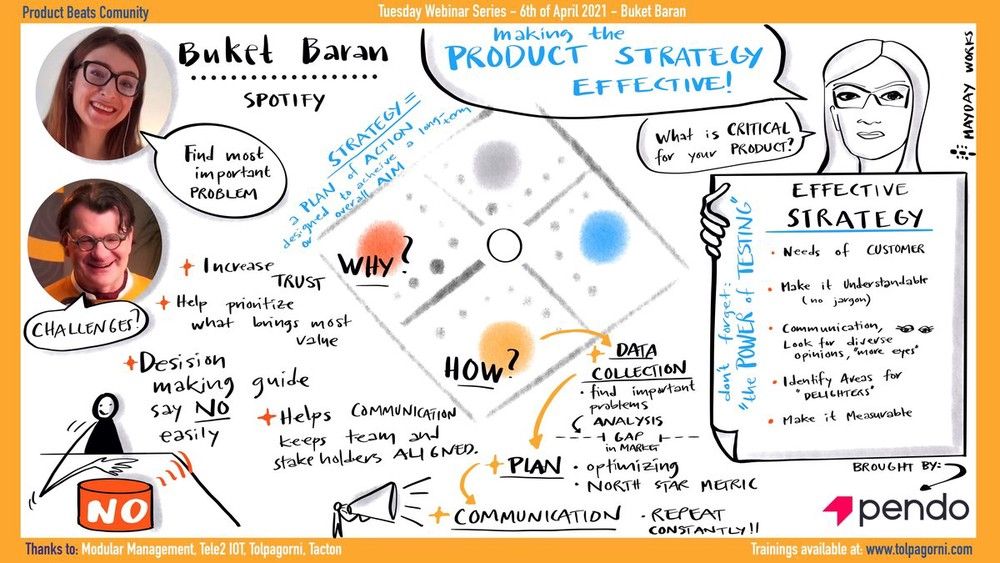 Product Beats Comunity
Tuesday Webinar Series - 6th of April 2021 - Buket Baran
Buket Baran
SPOTIFY
making the
PRODUCT STRATEGY
EFFECTIVE!
MAYDAY WORKS
What is CRITICAL
for your PRODUCT?
Find most
important
PROBLEM
STRATEGY =
a PLAN of ACTION
designed to acheive a long-term
or overall AIM
CHALLENGES?
WHY?
+ Increase
TRUST
+ Help prioritize
what brings most
value
+ Desision
making guide
say NO
easily
NO
+ Helps COMMUNICATION
keeps team and
stakeholders ALIGNED.
HOW?
+ DATA
COLLECTION
• find important
problems
ANALYSIS
GAP
in MARKET
+ PLAN
• optimizing
• NORTH STAR METRIC
+ COMMUNICATION
• REPEAT
CONSTANTLY!!
EFFECTIVE
STRATEGY
• Needs of CUSTOMER
• Make it Understandable
(no jargon)
• Communication,
Look for diverse
opinions, "more eyes"
• Identify Areas for
"DELIGHTERS"
• Make it Measurable
dont forget:
"the POWER of TESTING"
BROUGHT BY:
pendo
Thanks to: Modular Management, Tele2 IOT, Tolpagorni, Tacton
Trainings available at: www.tolpagorni.com